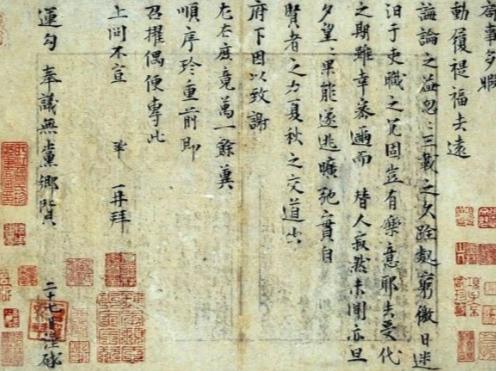 局事多暇
動履禔福去遠
誨論之益忽忽三載之久跧處窮徼日迷
汩于吏職之冗固豈有樂意耶去受代
之期雖幸密邇而替人寂然未聞亦旦
夕望望果能遂逃曠弛實自
賢者之力夏秋之交道出
府下因以致謝
左右庶竟萬一餘冀
順序珍重前即
召擢偶便專此
上問不宣 鞏 再拜
運勾 奉議無黨鄉賢
二十七日謹啟